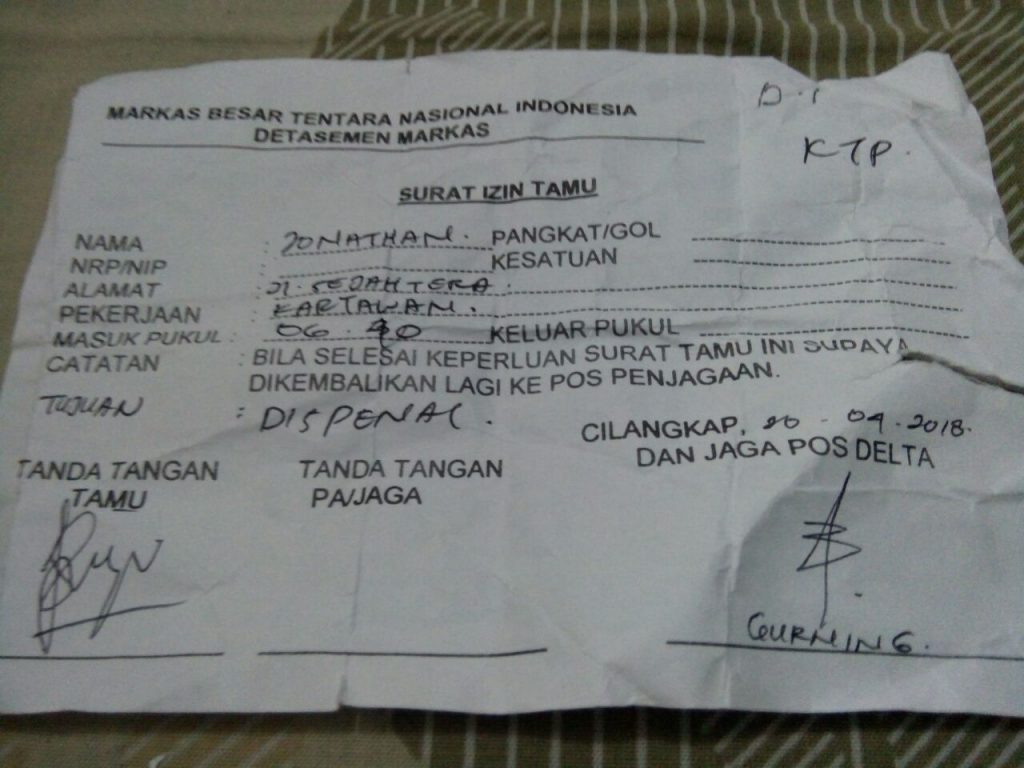 D.1
KTP.
MARKAS BESAR TENTARA NASIONAL INDONESIA
DETASEMEN MARKAS
SURAT IZIN TAMU
NAMA : JONATHAN. PANGKAT/GOL
NRP/NIP : KESATUAN
ALAMAT : JL. SEJAHTERA.
PEKERJAAN : KARTAWAN.
MASUK PUKUL : 06.40 KELUAR PUKUL
CATATAN : BILA SELESAI KEPERLUAN SURAT TAMU INI SUPAYA
DIKEMBALIKAN LAGI KE POS PENJAGAAN.
TUJUAN : DISPENAL.
CILANGKAP, 20-04-2018.
DAN JAGA POS DELTA
TANDA TANGAN TAMU
TANDA TANGAN PA/JAGA
GURNING.